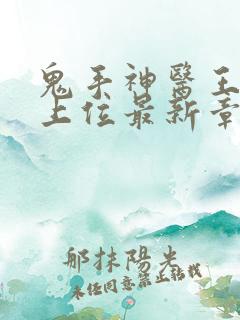 鬼手神醫王
上位最新章
那抹陽光
未經同意禁止轉載